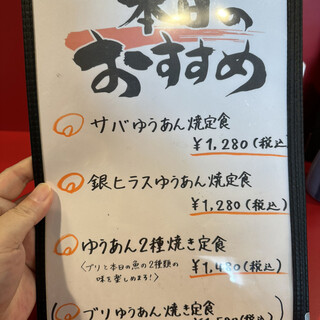 本日の
おすすめ
サバゆうあん焼定食
¥1,280(税込)
銀ヒラスゆうあん焼定食
¥1,280(税込)
ゆうあん2種焼き定食
〈ブリと本日の魚の2種類の
味を楽しめます!〉
¥1,480(税込)
(ブリゆうあん焼き定食)